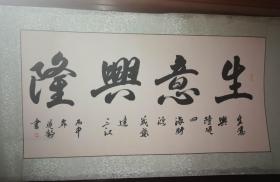 生意興隆
生意
興
隆通
四
海財
源
茂盛
達
三江
丙申
年
書